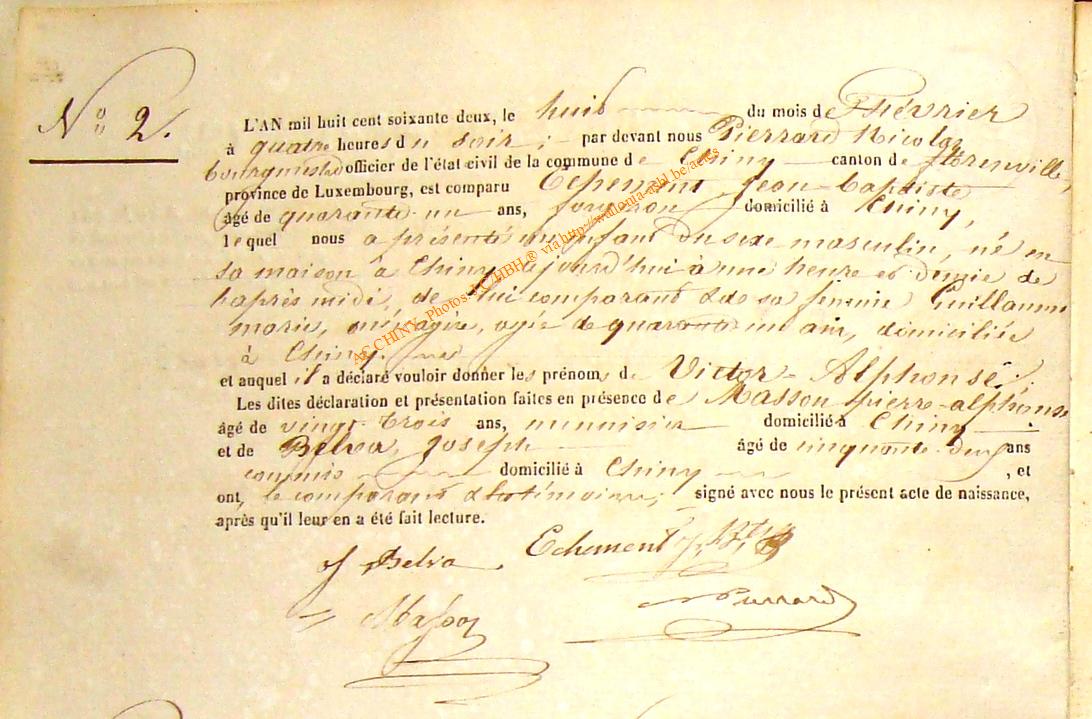 N° 2.
L'AN mil huit cent soixante deux, le huit du mois de Février
à quatre heures du soir; par devant nous Pierrard Nicolas
bourgmestre officier de l'état civil de la commune de Chiny canton de florenville,
province de Luxembourg, est comparu Echement, Jean-baptiste
âgé de quarante-un ans, forgeron domicilié à Chiny,
lequel nous a présenté un enfant du sexe masculin, né en
sa maison à Chiny aujourd'hui à une heure et demie de
l'après midi, de lui comparant & de sa femme Guillaume
marie, ménagère, agée de quarante un ans, domiciliée
à Chiny.
et auquel il a déclaré vouloir donner les prénoms de Victor-Alphonse;
Les dites déclaration et présentation faites en présence de Masson pierre-alphonse
âgé de vingt-trois ans, menuisier domicilié à Chiny
et de Belva, Joseph âgé de cinquante-deux ans
commis domicilié à Chiny, et
ont, le comparant & les témoins, signé avec nous le présent acte de naissance,
après qu'il leur en a été fait lecture.
J Belva Echement J Bte
Masson
N Pierrard
AC CHINY, Photos J.C.HBH.® via http://wallonia-asbl.be/actes